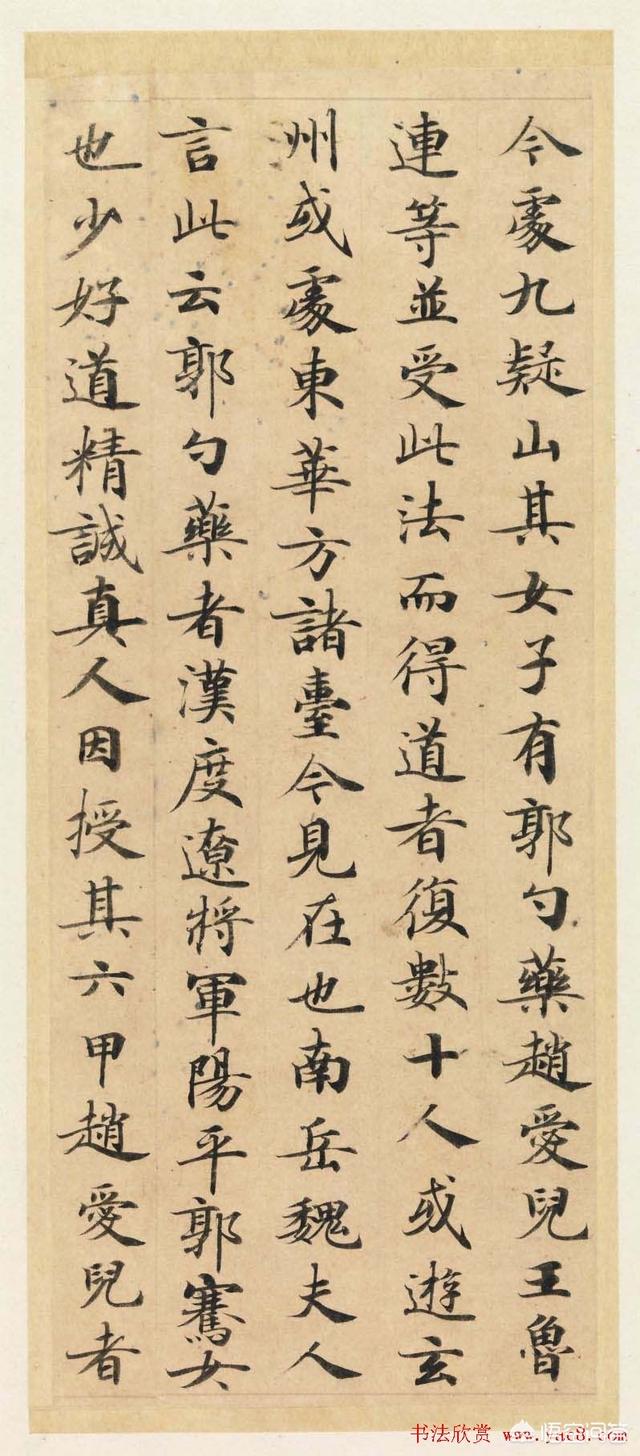 今䖏九疑山其女子有郭勺藥趙愛兒王魯
連等並受此法而得道者復數十人或遊玄
洲或䖏東華方諸臺今見在也南岳魏夫人
言此云郭勺藥者漢度遼將軍陽平郭騫女
也少好道精誠真人因授其六甲趙愛兒者
书法欣赏 www.yac8.com
悟空问答